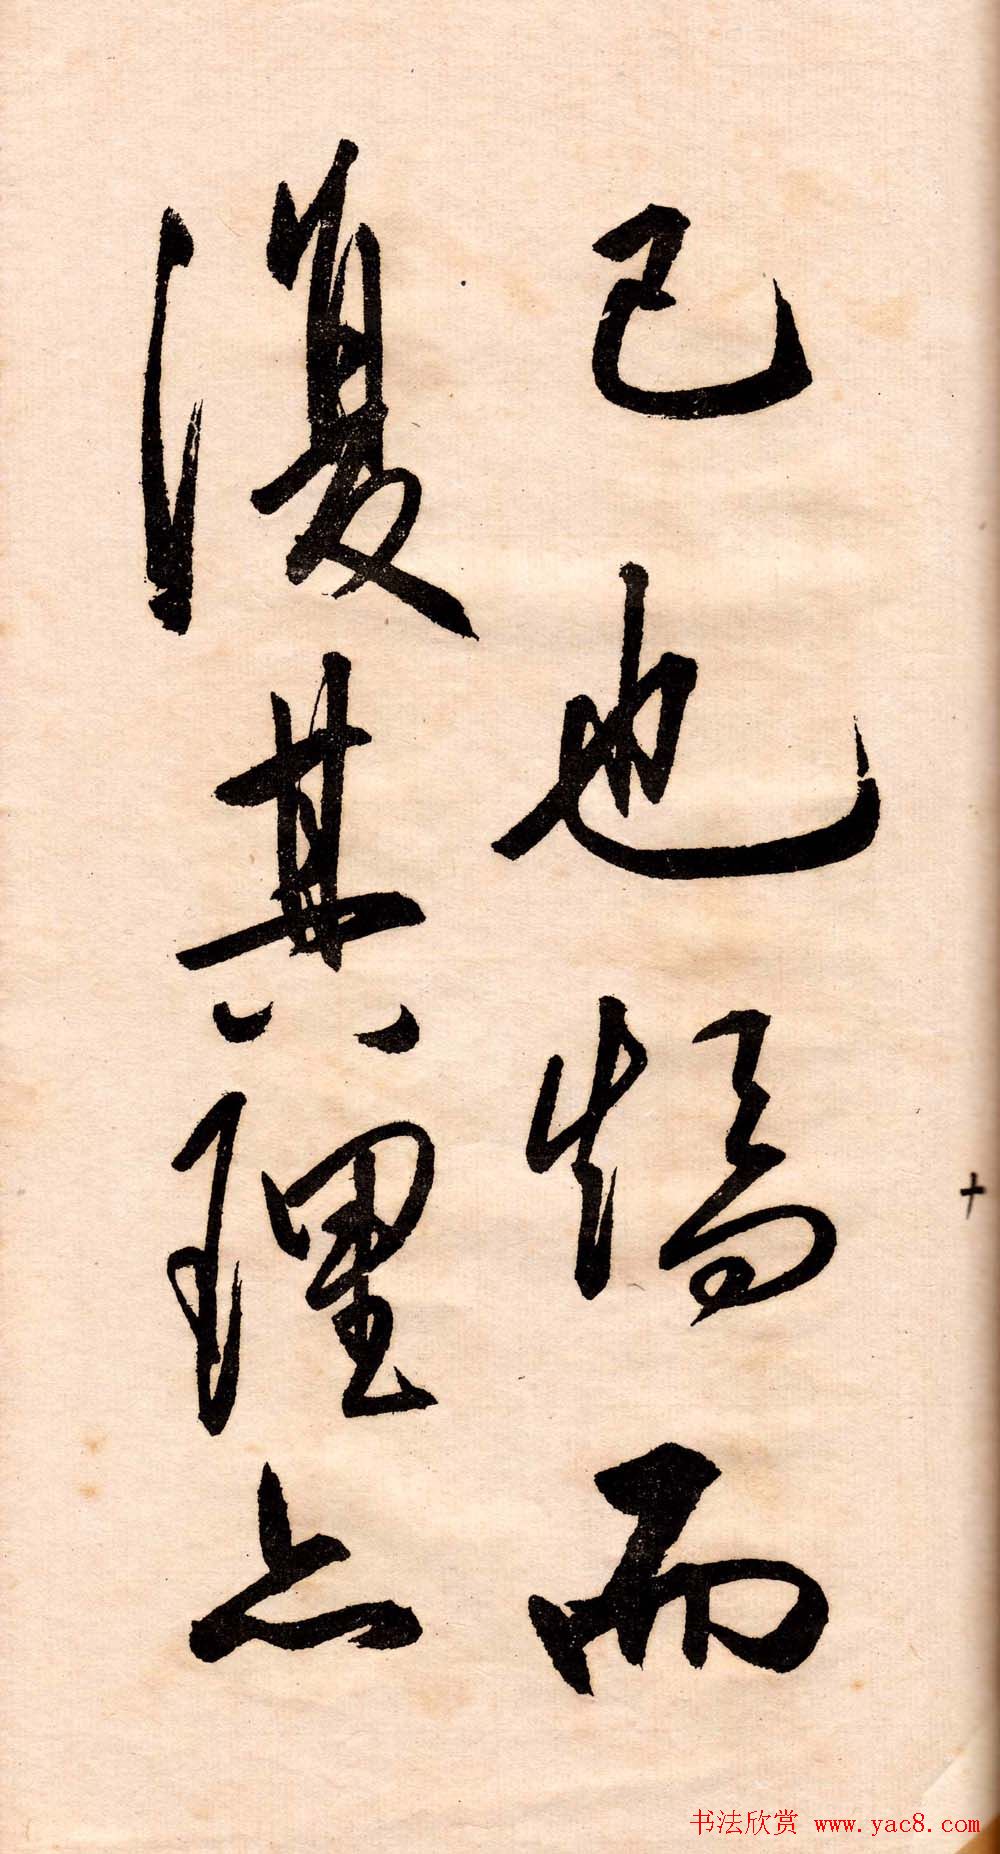 已也矯而
復其理上
十
书法欣赏 www.yac8.com